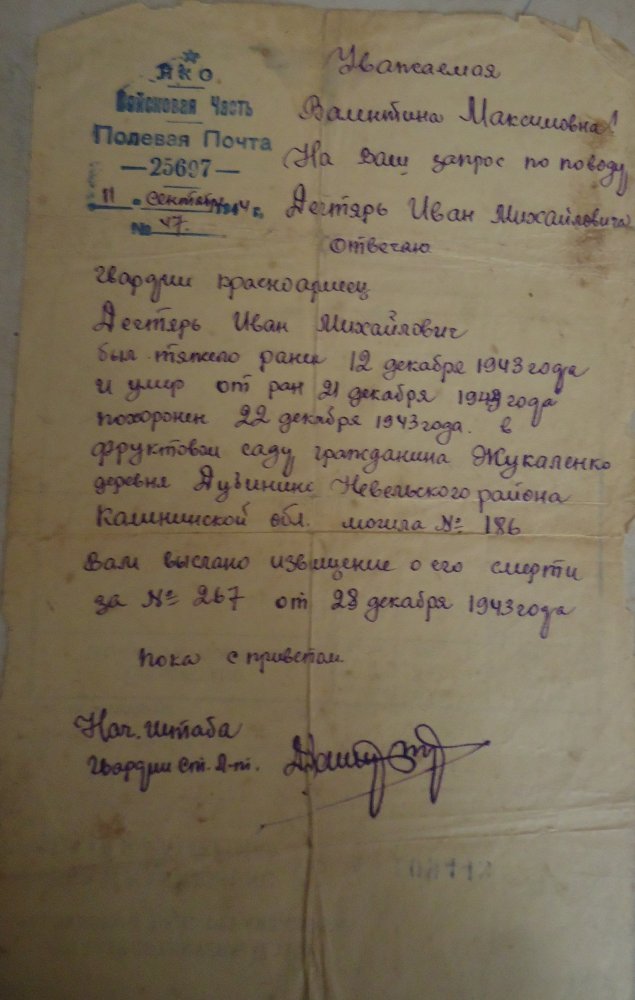 НКО
Войсковая Часть
Полевая Почта
— 25697 —
11 " сентября 1944 г.
№ 47.
Уважаемая
Валентина Максимовна!
На Ваш запрос по поводу
Дегтярь Иван Михайловича
отвечаю
гвардии красноармеец
Дегтярь Иван Михайлович
был тяжело ранен 12 декабря 1943 года
и умер от ран 21 декабря 1943 года
похоронен 22 декабря 1943 года. в
фруктовом саду гражданина Жукаленко
деревня Дубинино Невельского района
Калининской обл. могила № 186
Вам выслано извищение о его смерти
за № 267 от 28 декабря 1943 года
Пока с приветом
Нач. штаба
Гвардии ст. л-т.